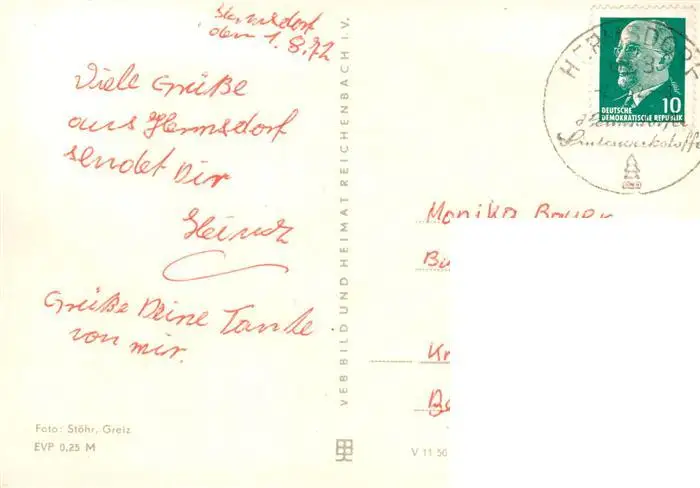 Hermsdorf
den 1.8.72
Viele Grüße
aus Hermsdorf
sendet Dir
Heinz
Grüße Deine Tante
von mir.
Foto: Stöhr, Greiz
EVP 0,25 M
VEB BILD UND HEIMAT REICHENBACH I. V.
V 11 50
HERMSDORF
10
DEUTSCHE
DEMOKRATISCHE REPUBLIK
Hermsdorfer
Monika Bauer